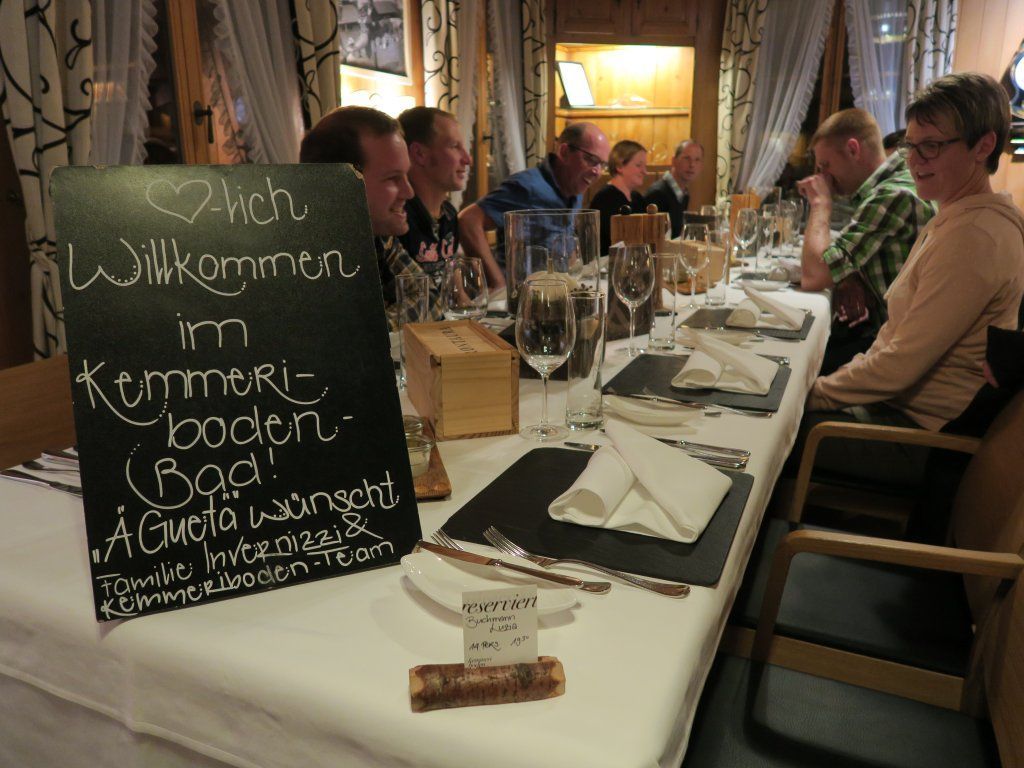 ♡-lich
Willkommen
im
Kemmeri-
boden-
Bad!
"Ä Guetä" wünscht
Familie Invernizzi &
Kemmeriboden-Team
reserviert
Buchmann
Luzia
14 Pers 19³⁰